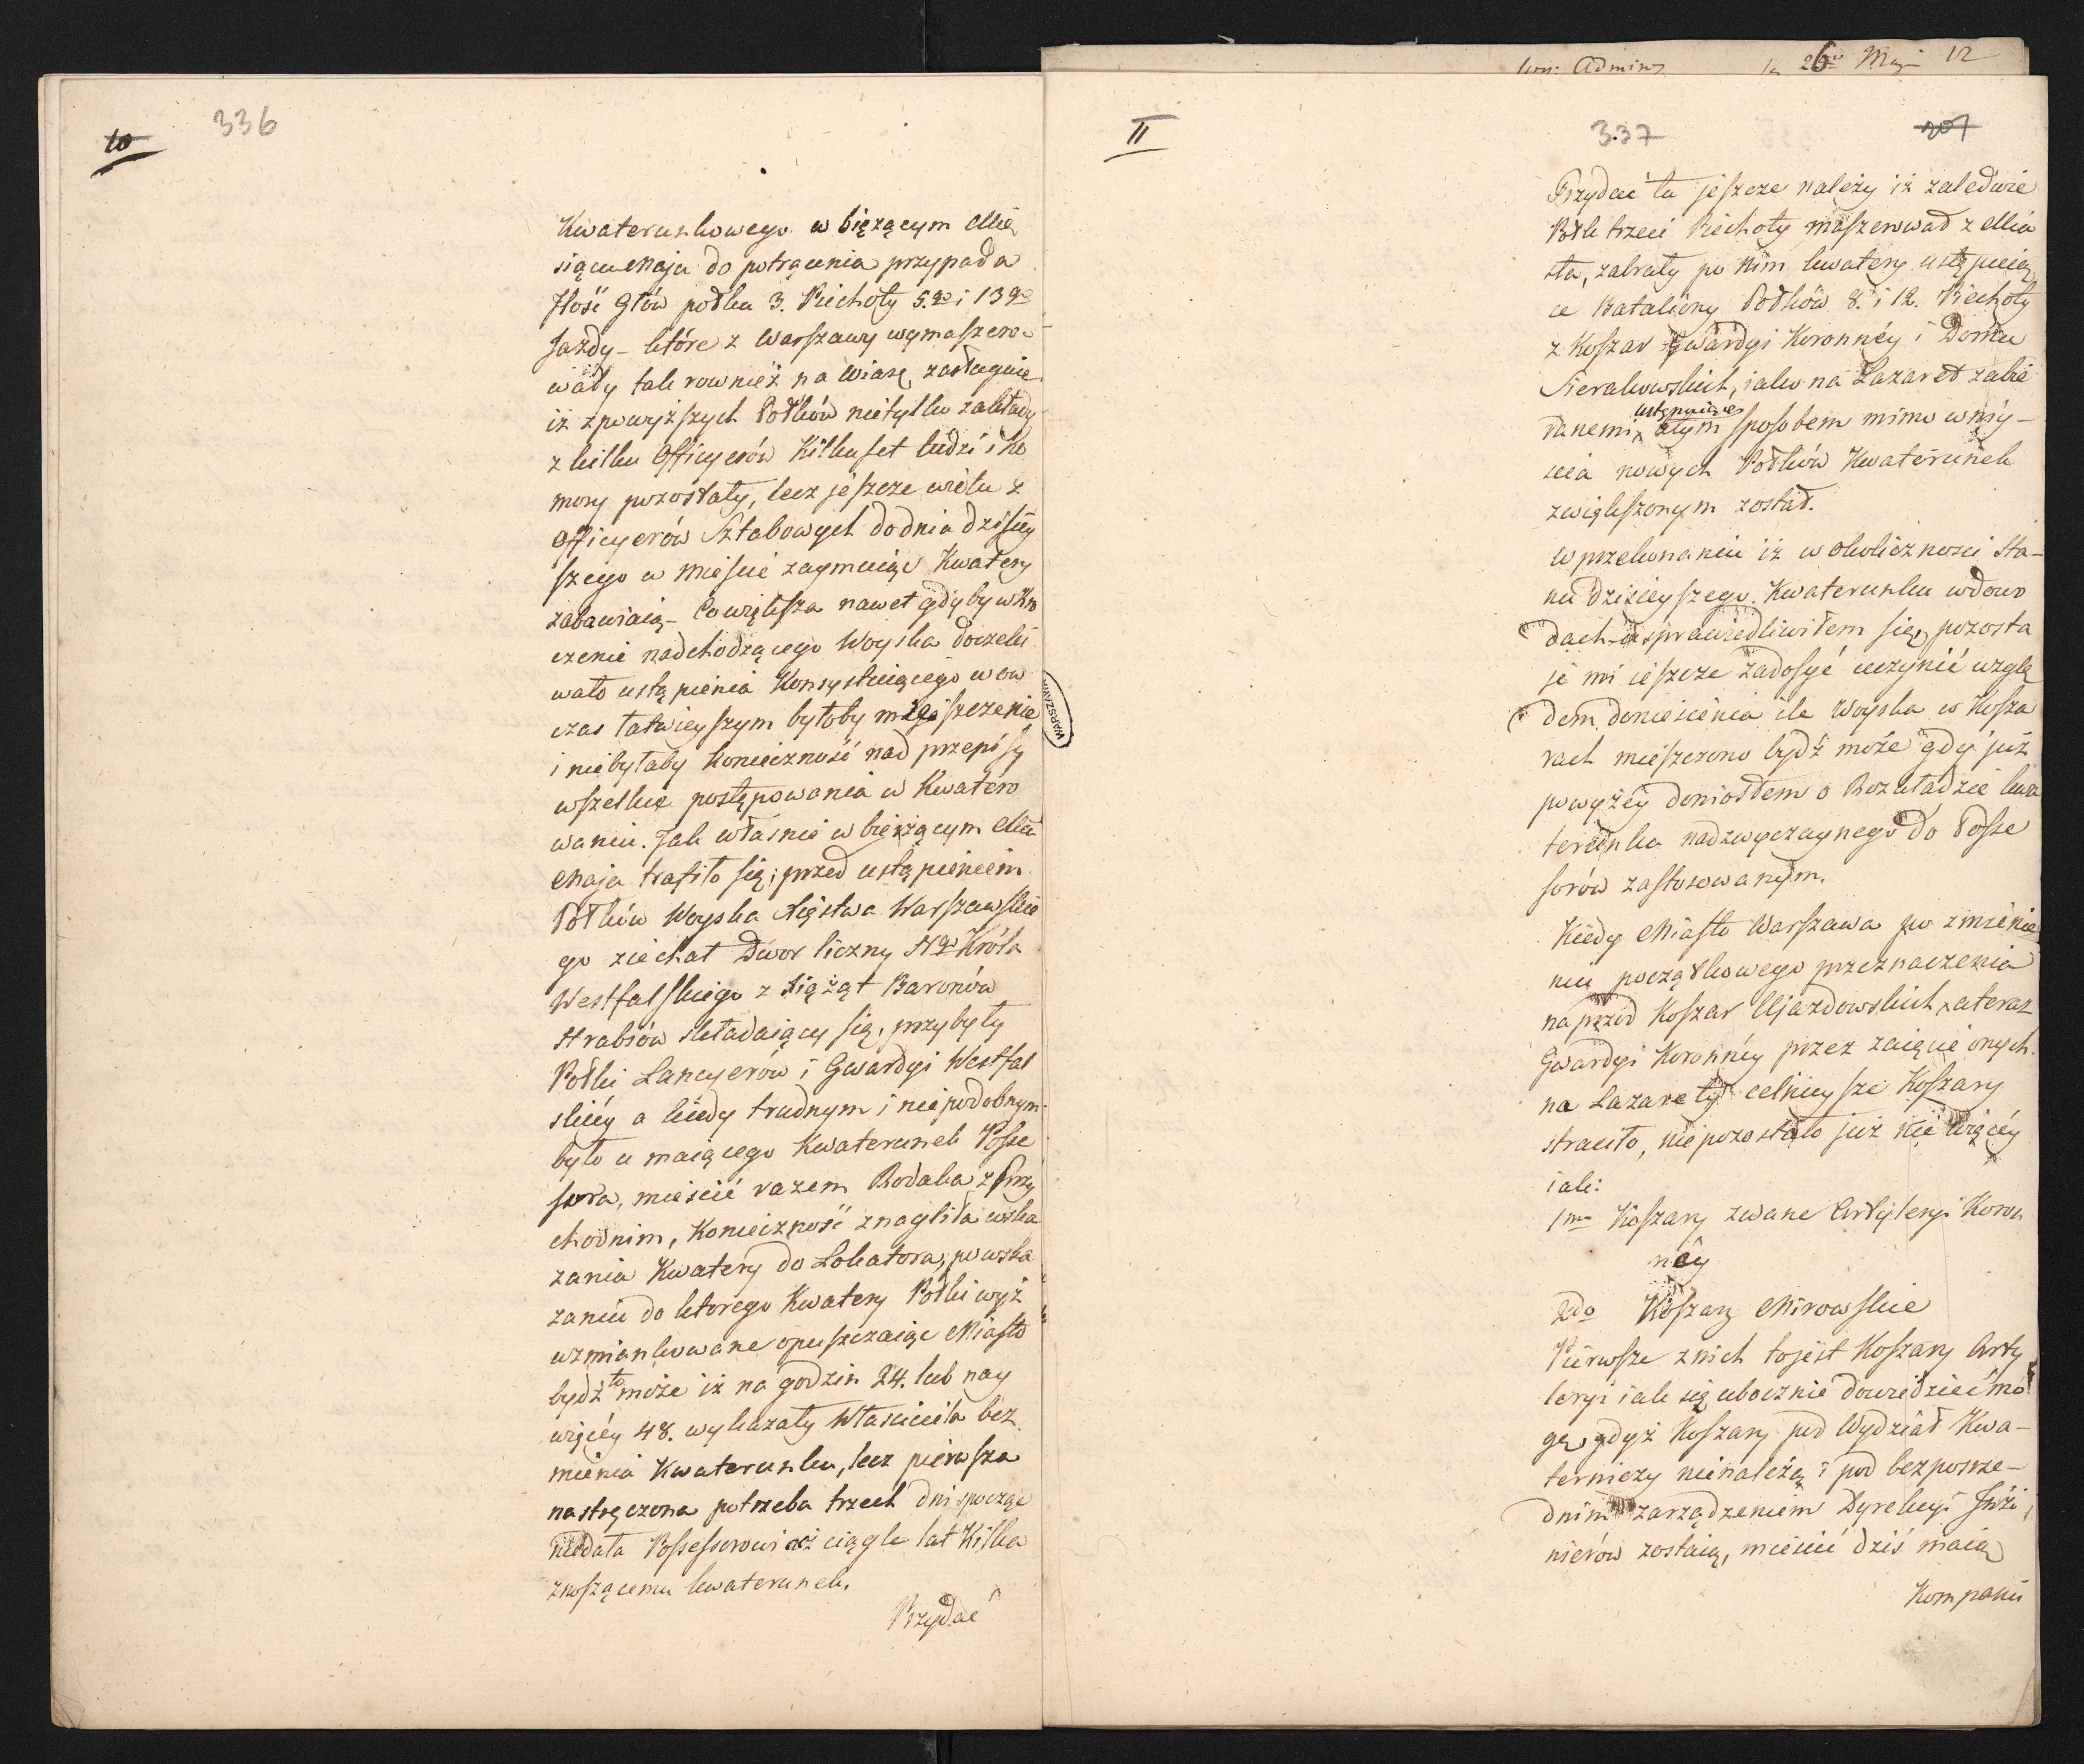 10
336
Kwaterunkowego w bięzącym Mie
siącu Maja do potrącenia przypada
Ilość Głów połku 3. Piechoty 5.go i 13go
Jazdy – które z Warszawy wymaszero-
wały tak rownież na wiarę zasługuie
iż zpowyższych Połków nietylko zakłady
z kilku Officyerów Kilkuset ludzi i Ko
mory pozostały, lecz jeszcze wielu z
Officyerów Sztabowych do dnia dzisiey
szego w Mieście zaymuiąc Kwatery
zabawiaią – Co większa nawet gdyby wkro
czenie nadchodzącego Woyska doczeki
wało ustąpienia Konsystuiącego w ow
czas łatwieyszym byłoby mieszczenie
i niebyłaby konieczność nad przepisy
wszelkie postępowania w Kwatero
waniu. Jak właśnie w bieżącym Mcu
Maja trafiło się; przed ustąpieniem
Połków Woyska Xięstwa Warszawskie
go ziechał Dwór liczny Ngo Króla
Westfalskiego z Xiążąt Baronów
Hrabiów składaiący się, przybyły
Połki Lancyerów i Gwardyi Westfal
skiéy a kiedy trudnym i niepodobnym
było u maiącego Kwaterunek Posse
sora, mieścić razem Rodaka z Przy
chodnim, Konieczność znagliła wska
zania Kwatery do Lokatora, po wska
zaniu do ktorego Kwatery Połki wyż
wzmiankowane opuszczaiąc Miasto
bydź to może iż na godzin 24. lub nay
więcéy 48. wykazały Własciciela bez
mienia Kwaterunku, lecz pierwsza
nastręczona potrzeba trzech dni spocząć
niedała Possessorowi iuż ciągle lat Kilka
znoszącemu kwaterunek.
Przydać
WARSZAWA
26go Maj 12
II
337
207
Przydać tu jeszcze należy iż zaledwie
Połk trzeci Piechoty maszerował z Mia
sta, zabrały po Nim kwatery ustępuią
ce Bataliony Połków 8. i 12. Piechoty
z Koszar Gwardyi Koronnéy i Domu
Sierakowskich, iako na Lazaret zabie
ustępuiące
ranemi, a tym sposobem mimo wniy-
scia nowych Połków Kwaterunek
zwiększonym został.
W przekonaniu iż w okoliczności Sta-
nu dzisieyszego Kwaterunku wdowo
dach usprawiedliwiłem się, pozosta
je mi ieszcze zadosyć uczynić wzglę
dem doniesienia ile Woyska w Kosza
rach mieszczono bydź może gdy już
powyżéy doniosłem o Rozkładzie kwa
terunku nadzwyczaynego do Posse
sorów zastosowanym.
Kiedy Miasto Warszawa po zmienie
niu początkowego przeznaczenia
naprzód Koszar Ujazdowskich, a teraz
Gwardyi Koronnéy przez zaięcie onych
na Lazarety celnieysze Koszary
straciło, nie pozostało już nic więcéy
iak:
1mo Koszary zwane Artyleryi Koron
néy
2do Koszary Mirowskie
Pierwsze z nich to jest Koszary Arty
leryi iak się ubocznie dowiedzieć mo
gę, gdyż Koszary pod Wydział Kwa-
terniczy nienależą i pod bezposrze-
dnim zarządzeniem Dyrekcyi Inżi
nierów zostaią, mieścić dziś maią
Kompanii